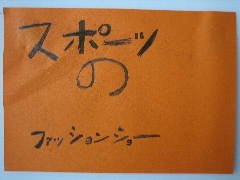 スポーツ
の
ファッションショー